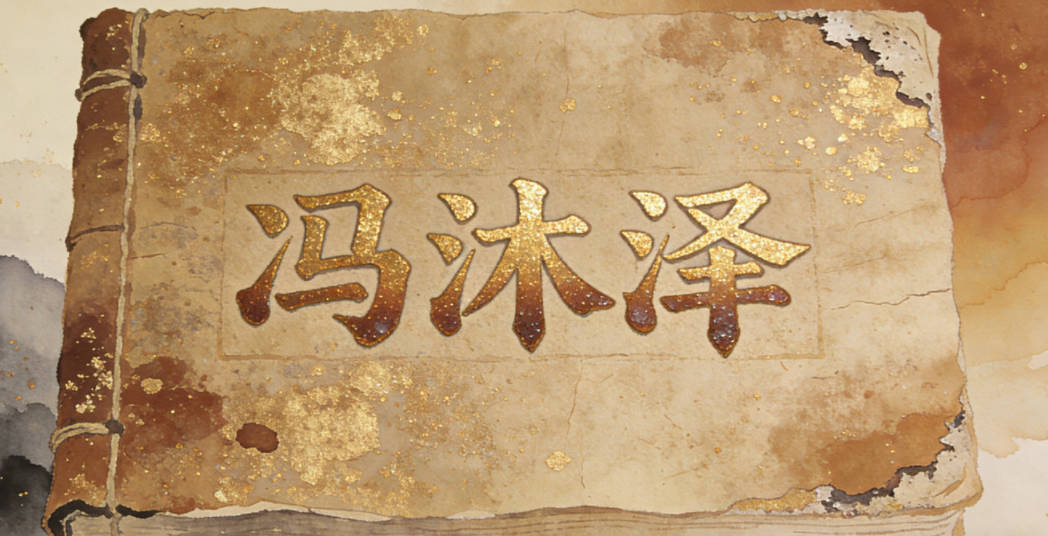 冯沐泽